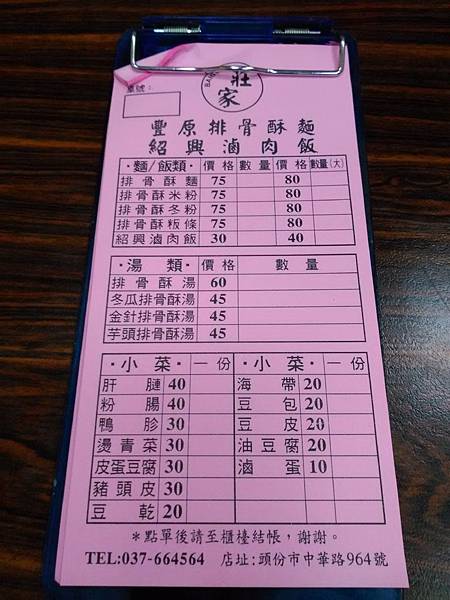 桌號：
莊家
豐原排骨酥麵
紹興滷肉飯
·麵/飯類· 價格 數量 價格 數量(大)
排骨酥麵 75 80
排骨酥米粉 75 80
排骨酥冬粉 75 80
排骨酥粄條 75 80
紹興滷肉飯 30 40
湯類 價格 數量
排骨酥湯 60
冬瓜排骨酥湯 45
金針排骨酥湯 45
芋頭排骨酥湯 45
·小菜· 一份 ·小菜· 一份
肝腱 40 海帶 20
粉腸 40 豆包 20
鴨胗 30 豆皮 20
燙青菜 30 油豆腐 20
皮蛋豆腐 30 滷蛋 10
豬頭皮 30
豆乾 20
*點單後請至櫃檯結帳，謝謝。
TEL:037-664564 店址:頭份市中華路964號